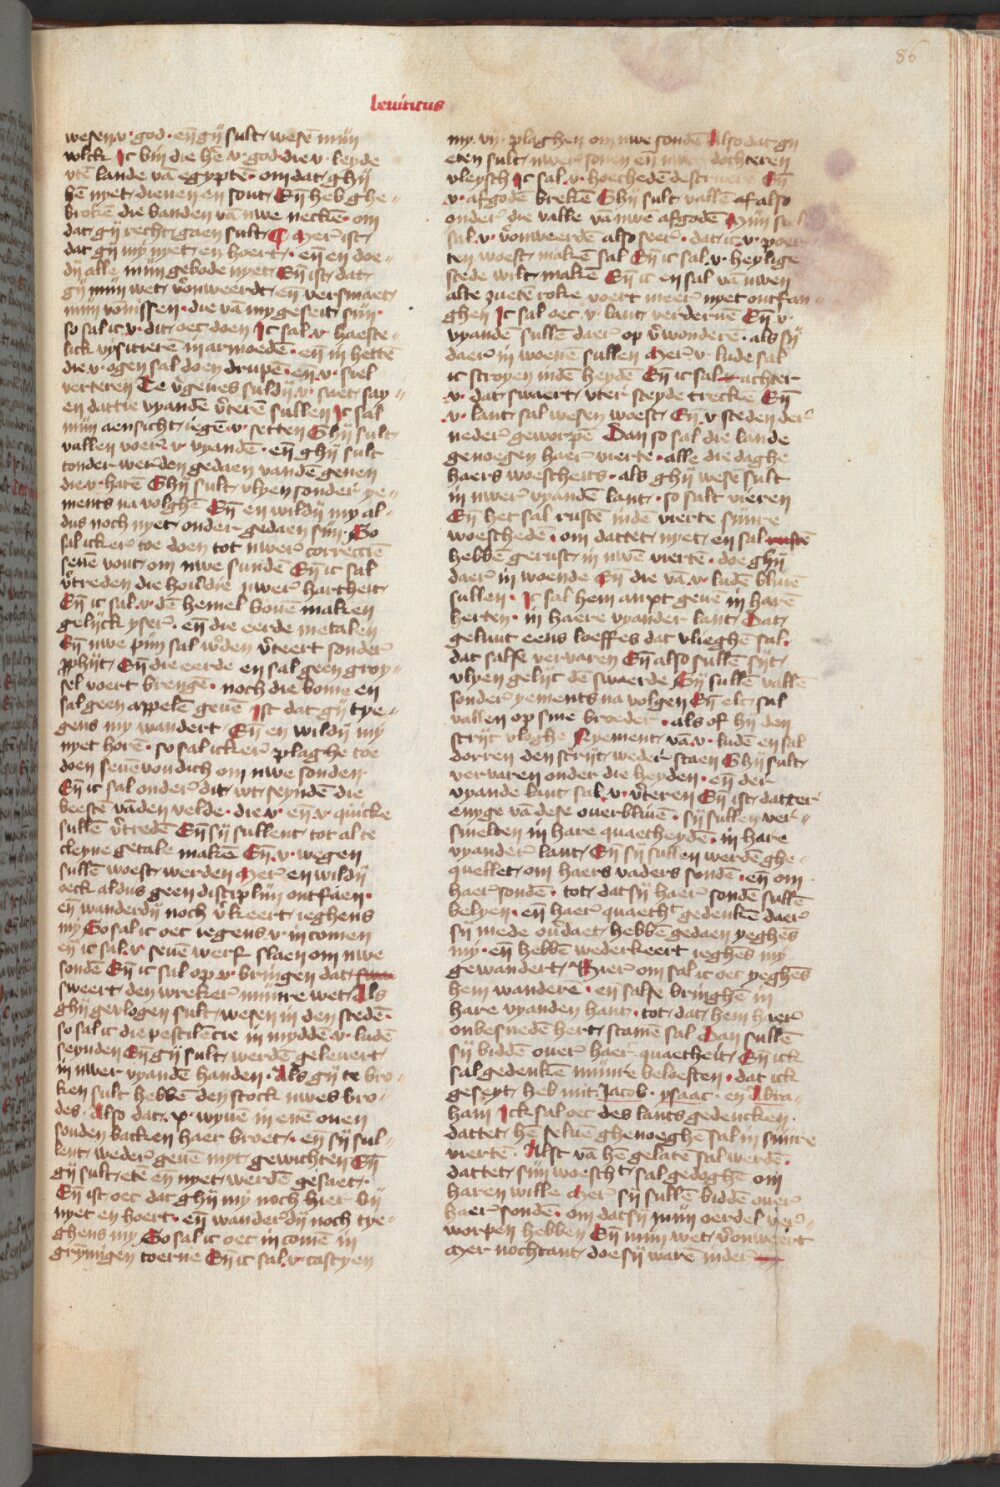 86
leuiticus
wesen v· god· en̄ gij sult wesē mijn
volck Ic bin die hē v· god die v· leyde
vtē lande vā egyptē· om dat ghij
hē nyet dienen en sout En̄ heb ghe
brokē die banden vā nwe neckē· om
dat gij recht gaen sult Mer ist
dat gij mij nyet en hoert· en̄ en doe
dij alle mijn gebode nyet En̄ ist dat
gij mijn wet vonweerdt en̄ versmaet
mijn vōnissen· die vā my geseit sijn·
so sal ic v· dit oec doen Ic sal v· haeste
lick visiterē in armoedē· en̄ in hettē
die v· ogen sal doen drupē· en̄ v· siel
verteren Te vgeues suldij v· saet say
en dattie vyandē vterē sullen Ic sal
mijn aensicht iegē v· setten Ghij sult
vallen voer v· vyandē· en̄ ghij sult
tonder werden gedaen vanden genen
die v· hatē Ghij sult vlyen sonder ye
ments na volghē En̄ en wildij my al
dus noch nyet onder gedaen sijn· So
sal icker toe doen tot nwer correctiē
seuē vout om nwe sundē En̄ ic sal
vtreden die houdie nwer hartheit
En̄ ic sal v· dē hemel bouē maken
gelijck yser· en̄ die eerde metalen
En̄ nwe pijn sal wden vteert sonder
pphijt En̄ die eerde en sal geen groy
sel voert brengē· noch die bome en
sal geen appelē geuē Ist dat gij tye
gens my wandert En̄ en wildij my
nyet horē· so sal icker plaghe toe
doen seuēvondich om nwe sonden
En̄ ic sal onder dit wt seynden die
beestē vāden velde· die v· en̄ v· quicke
sullē vtredē En̄ sij sullent tot al te
cleyne getale makē En̄ v· wegen
sullē woest werden Mer en wildij
oeck aldus geen disciplijn ontfaen·
en̄ wanderdij noch vkeert ieghens
mij So sal ic oec iegens v· in comen
en̄ ic sal v· seuē werf slaen om nwe
sondē En̄ ic sal op v· bringen dat
sweert den wreker mijnre wet Als
ghij gevlogen sult wesen in den stedē·
so sal ic die pestilēcie in myddē v· ludē
seynden En̄ gij sult werdē geleuert
in nwer vyandē handen· Als gij te bro
ken sult hebbē den stock nwes bro
des· Also dat x· wyuē in enē ouen
sonden backen haer broet· en sij sul
lent weder geuē myt gewichten En̄
gij sult etē en nyet werdē gesaet·
En̄ ist oec dat ghij mij noch hier bij
nyet en hoert· en̄ wanderdij noch tye
ghens my So sal ic oec in comē in
grymigen toerne En̄ ic sal v· castyen
my vij· plaghen om nwe sondē Also dat gij
eten sult nwer sonen en̄ nwer dochteren
vleysch Ic sal v· hoechedē destruerē En̄
v· afgodē brekē Ghij sult vallē af also
onder die valle vā nwe afgodē Mijn
sal v· vonweerdē also seer· dat ic v· poer
ten woest makē sal En̄ ic sal v· heylige
stede wilt makē En̄ ic en sal vā nwen
alte zuetē roke voert meer nyet ontfan
ghen Ic sal oec v· lant verdernē En̄ v·
vyandē sullē daer op vwonderē· als sij
daer in wonē sullen Mer v· lude sal
ic stroyen indē heydē En̄ ic sal achter
v· dat swaert vter steyde treckē En̄
v· lant sal wesen woest En̄ v steden der
neder geworpē Dan so sal die lande
genoegen haer vierte· alle die daghe
haers woescheits· als ghij wesē sult
in nwer vyandē lant· so salt vieren
En̄ het sal rustē indē vierte sijnre
woeschede· om dattet nyet en sal
hebbē gerust in nwē viertē· doe ghij
daer in woende En̄ die vā v· ludē bliuē
sullen· Ic sal hem anxt geuē in harē
herten· in haere vyander lant Dat
geluut eens loeffes dat vlieghē sal·
dat salse vervaren En̄ also sullē sijt
vlyen gelijc dē swaerde Sij sullē vallē
sonder yements na volgen En̄ elc sal
vallen op sine broeder· als of hij den
strijt vloghe Nyement vā v· ludē en sal
dorren den strijt weder staen Ghij sult
vervaren onder die heyden· en̄ der
vyande lant sal v· vteren En̄ ist datter
enige vā dese ouerbliuē· sij sullen ver
smelten in hare quaetheydē· in hare
vyander lant En̄ sij sullen werdē ghe
quellet om haers vaders sondē· en̄ om
haer sondē· tot dat sij haer sondē sullē
belyen· en̄ haer quaeth gedenkē daer
sij mede oūdaet hebbē gedaen yeghēs
my· en̄ hebbē wederkeert ieghēs mij
gewandert Hier om sal ic oec yeghēs
hem wanderē· en salse bringhē in
hare vyanden hant· tot dat hem haer
onbesnedē hert scamē sal Dan sullē
sij biddē ouer haer quaetheit En̄ ick
sal gedenkē mijnre beloeften· dat ick
geseyt heb mit Jacob· ysaac· en Abra
ham Ick sal oec des lants gedencken·
dattet hē seluē ghenoeghē sal in sijnre
vierte· Alst vā hē gelatē sal werdē·
dattet sijn woescht sal gedoghē om
haren wille Mer sij sullē biddē ouer
haer sondē· om dat sij mijn oerdel ver
worpen hebben En̄ mijn wet vonweert
Mer nochtant doe sij warē in der